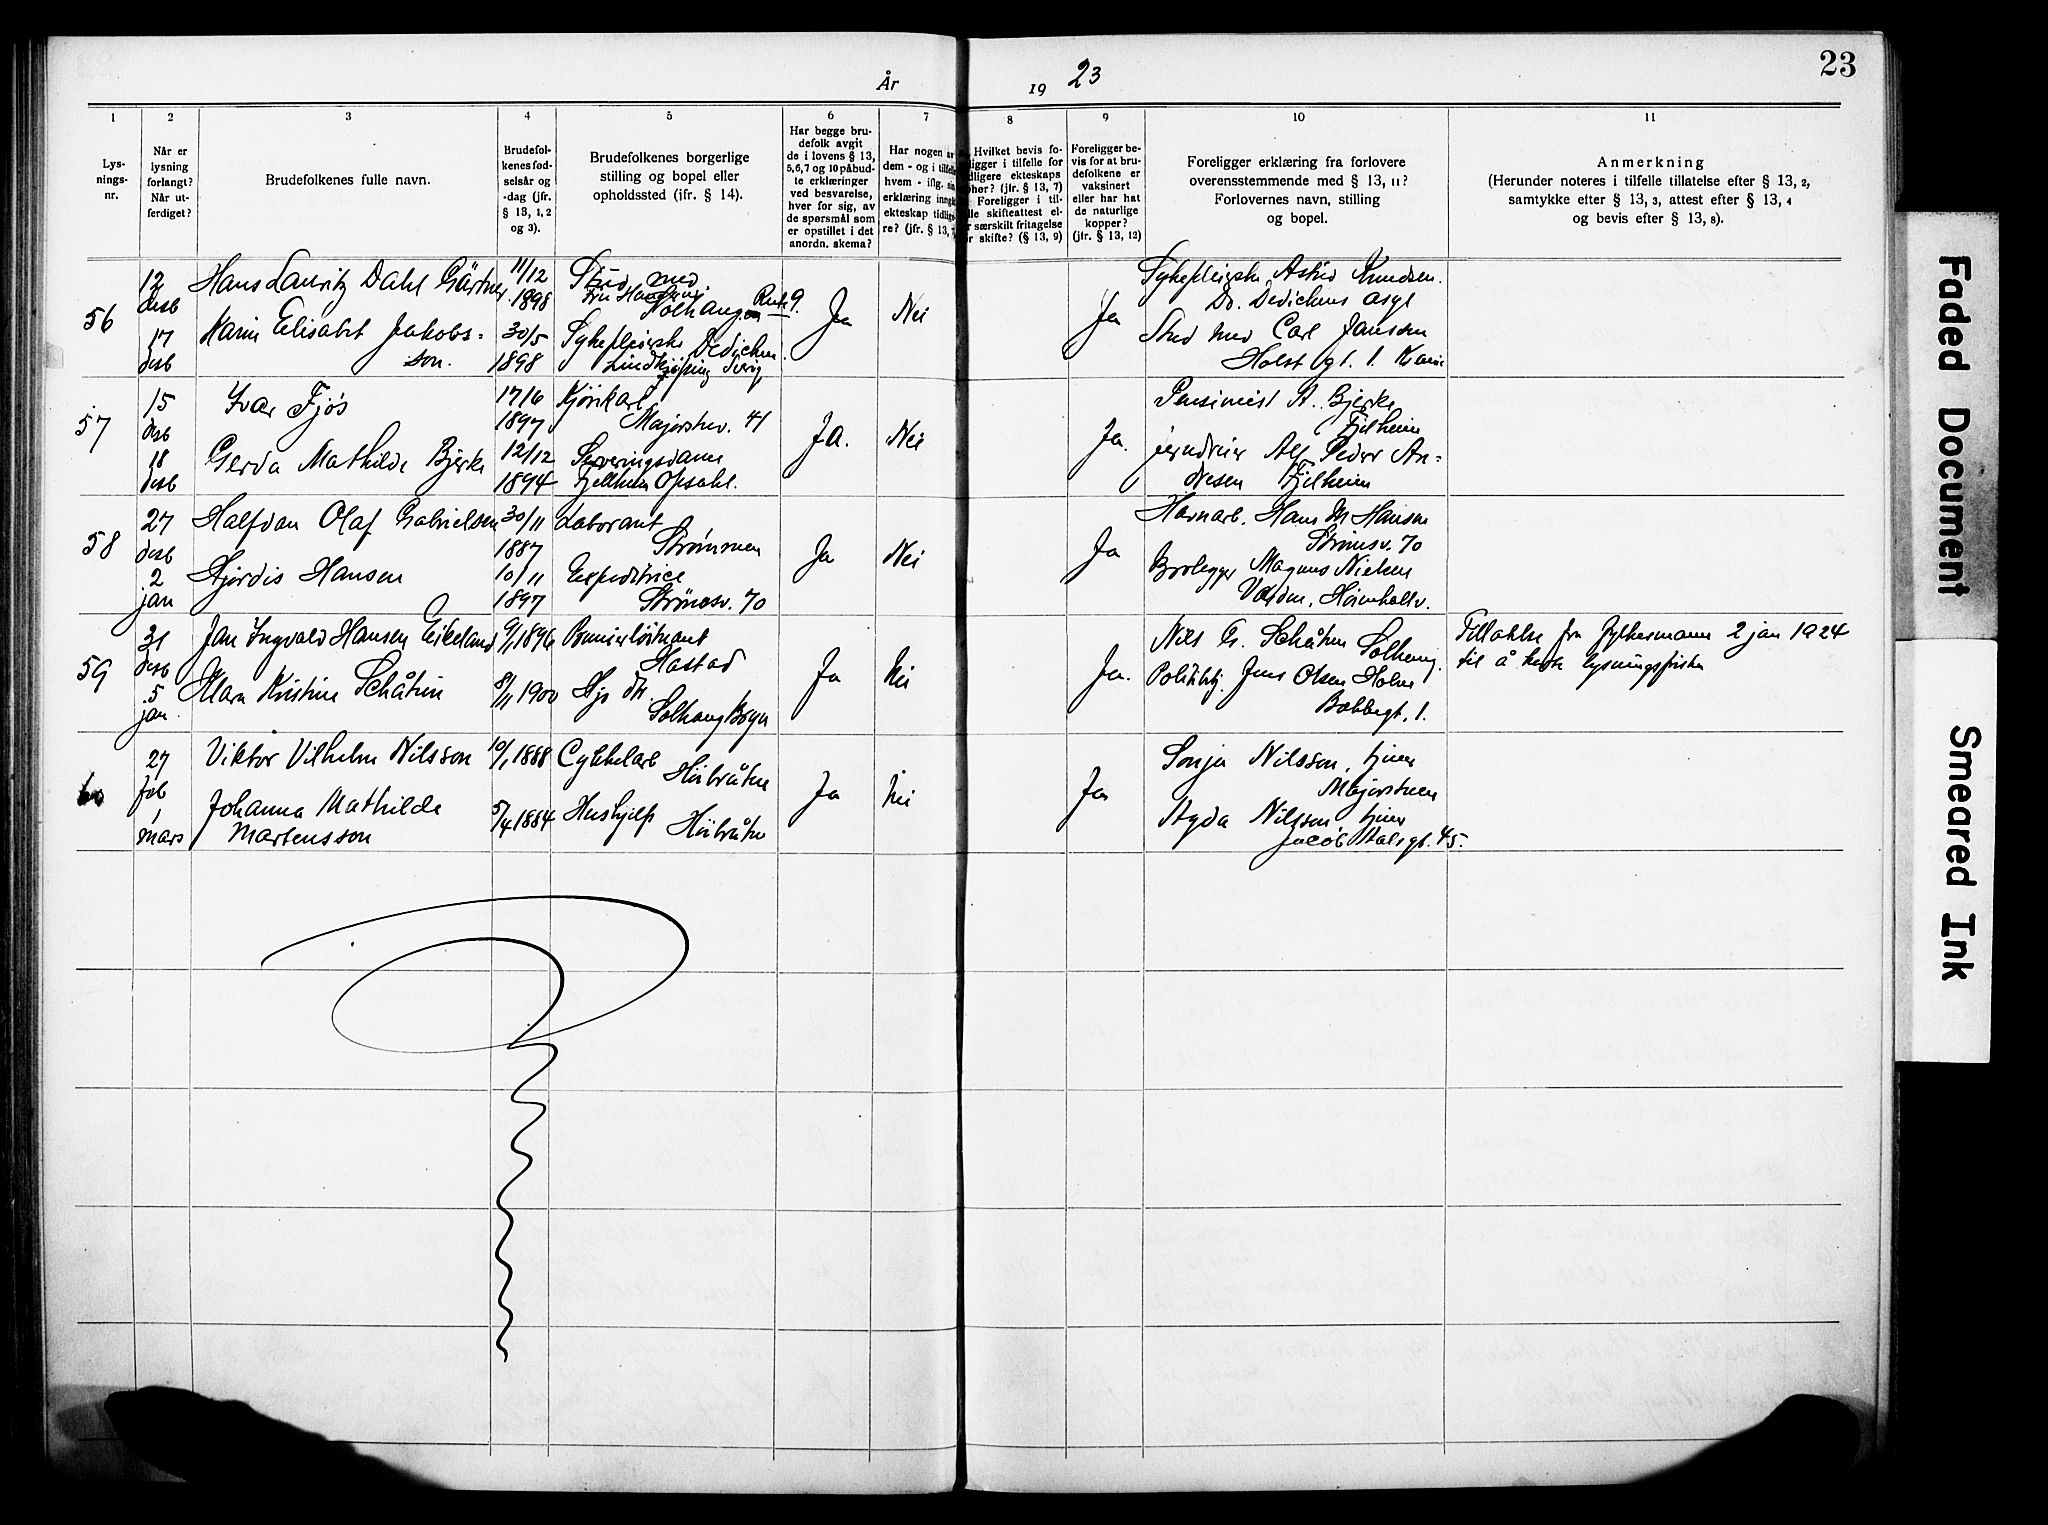 År
19 23
23
1
2
3
4
5
6
7
8
9
10
11
Lys-
nings-
nr.
Når er
lysning
forlangt?
Når ut-
ferdiget?
Brudefolkenes fulle navn.
Brudefol-
kenes fød-
selsår og
-dag (jfr.
§ 13, 1, 2
og 3).
Brudefolkenes borgerlige
stilling og bopel eller
opholdssted (ifr. § 14).
Har begge bru-
defolk avgit
de i lovens § 13,
5,6,7 og 10 påbud-
te erklæringer
ved besvarelse,
hver for sig, av
de spørsmål som
er opstillet i det
anordn. skema?
Har nogen a
dem - og i tilfelle
hvem - iflg. sin
erklæring inng
ekteskap tidlig
re? (jfr. § 13,
Hvilket bevis fo-
ligger i tilfelle for
dligere ekteskaps
phør? (jfr. § 13, 7)
Foreligger i til-
lle skifteattest el-
r særskilt fritagelse
or skifte? (§ 13, 9)
Foreligger be-
vis for at bru-
defolkene er
vaksinert
eller har hat
de naturlige
kopper?
(jfr. § 13, 12)
Foreligger erklæring fra forlovere
overensstemmende med § 13, 11?
Forlovernes navn, stilling
og bopel.
Anmerkning
(Herunder noteres i tilfelle tillatelse efter § 13, 2,
samtykke efter § 13, 3, attest efter § 13, 4
og bevis efter § 13, 8).
56
12
desb
17
desb
Hans Lauritz Dahl Gärtner
Karin Elisabet Jakobs-
son.
11/12
1898
30/5
1898
Stud med
Solhaug
Sykepleierske Dedichen
Ja
Nei
Ja
Sykepleierske Astrid Knudsen.
Dr. Dedichens asyl
Stud med Carl Janssen
Holst gt. 1.
57
15
desb
18
desb
Ivar Fjøs
Gerda Mathilde Bjerke
17/6
1897
12/12
1894
Kjørekarl
Majorstuv. 41
Serveringsdame
Fjellheim Opsahl.
Ja.
Nei
Ja.
A. Bjerke
Fjelheim
Alf Peder An-
Fjelheim
58
27
desb
2
jan
Halfdan Olaf Gabrielsen
Hjørdis Hansen
30/11
1887
10/11
1897
Laborant
Strømmen
Expeditrice
Strømsv. 70
Ja
Nei
Ja
Havnarb. Hans M Hansen
Strømsv. 70
Brolegger Magnus Nielsen
59
31
desb
5
jan.
Jan Ingvald Hansen Eikeland
Klara Kristine Schåtun
9/1 1896
8/1 1900
Premierløitnant
Hastad
Hjv dtr.
Solhaug Bryn
Ja
Nei
Ja.
Nils Schåtun Solhaug.
Politibtj. Jens Olsen Holm
Bakkegt. 1.
Tillatelse fra fylkesmann 2 jan 1924
til å korte lysningsfristen
60
27
feb
1
mars
Viktor Vilhelm Nilsson
Johanna Mathilde
Martensson
10/1 1888
5/4 1884
Cykkelarb
Høibråten
Hushjelp
Høibråten
Ja
Nei
Ja
Sonja Nilsson, tjener
Majorstuen
Agda Nilsson tjener
Jacob Aalsgt. 45.
Faded Document
Smeared Ink